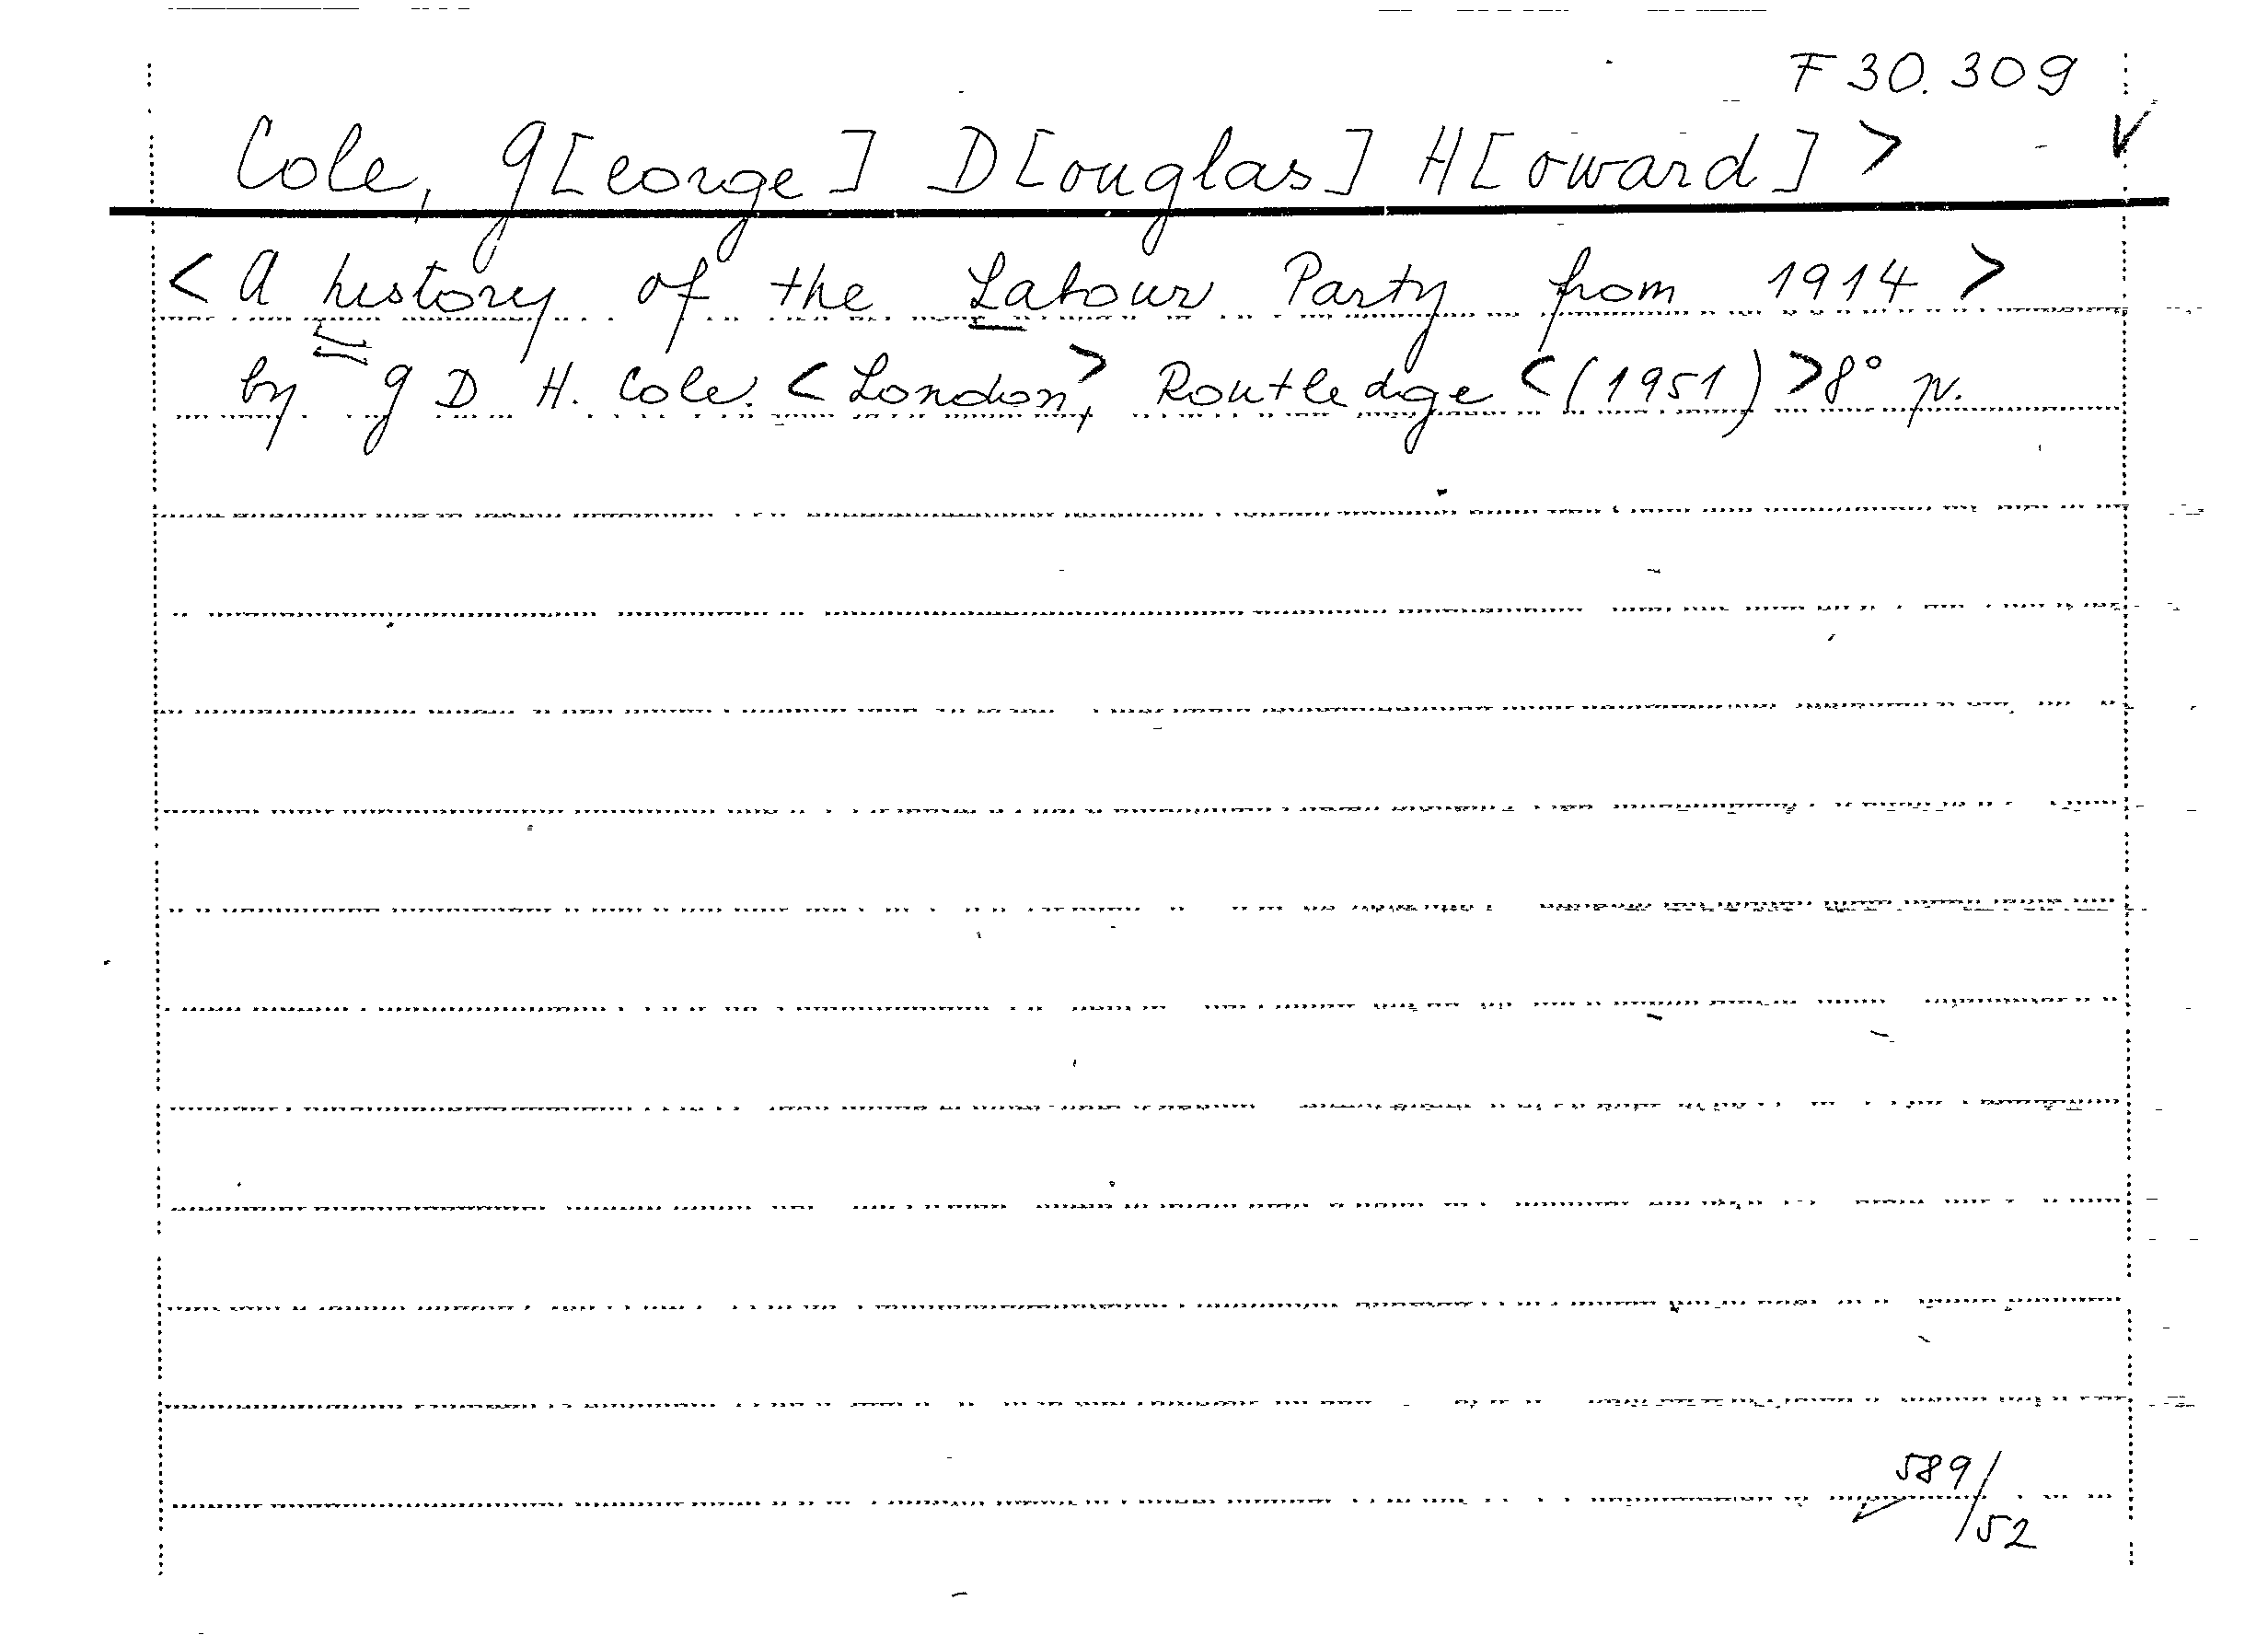 F 30.309
Cole, G[eorge] D[ouglas] H[oward] >
< A history of the Labour Party from 1914 >
by G D H. Cole. < London, > Routledge < (1951) > 8° p.
589/52